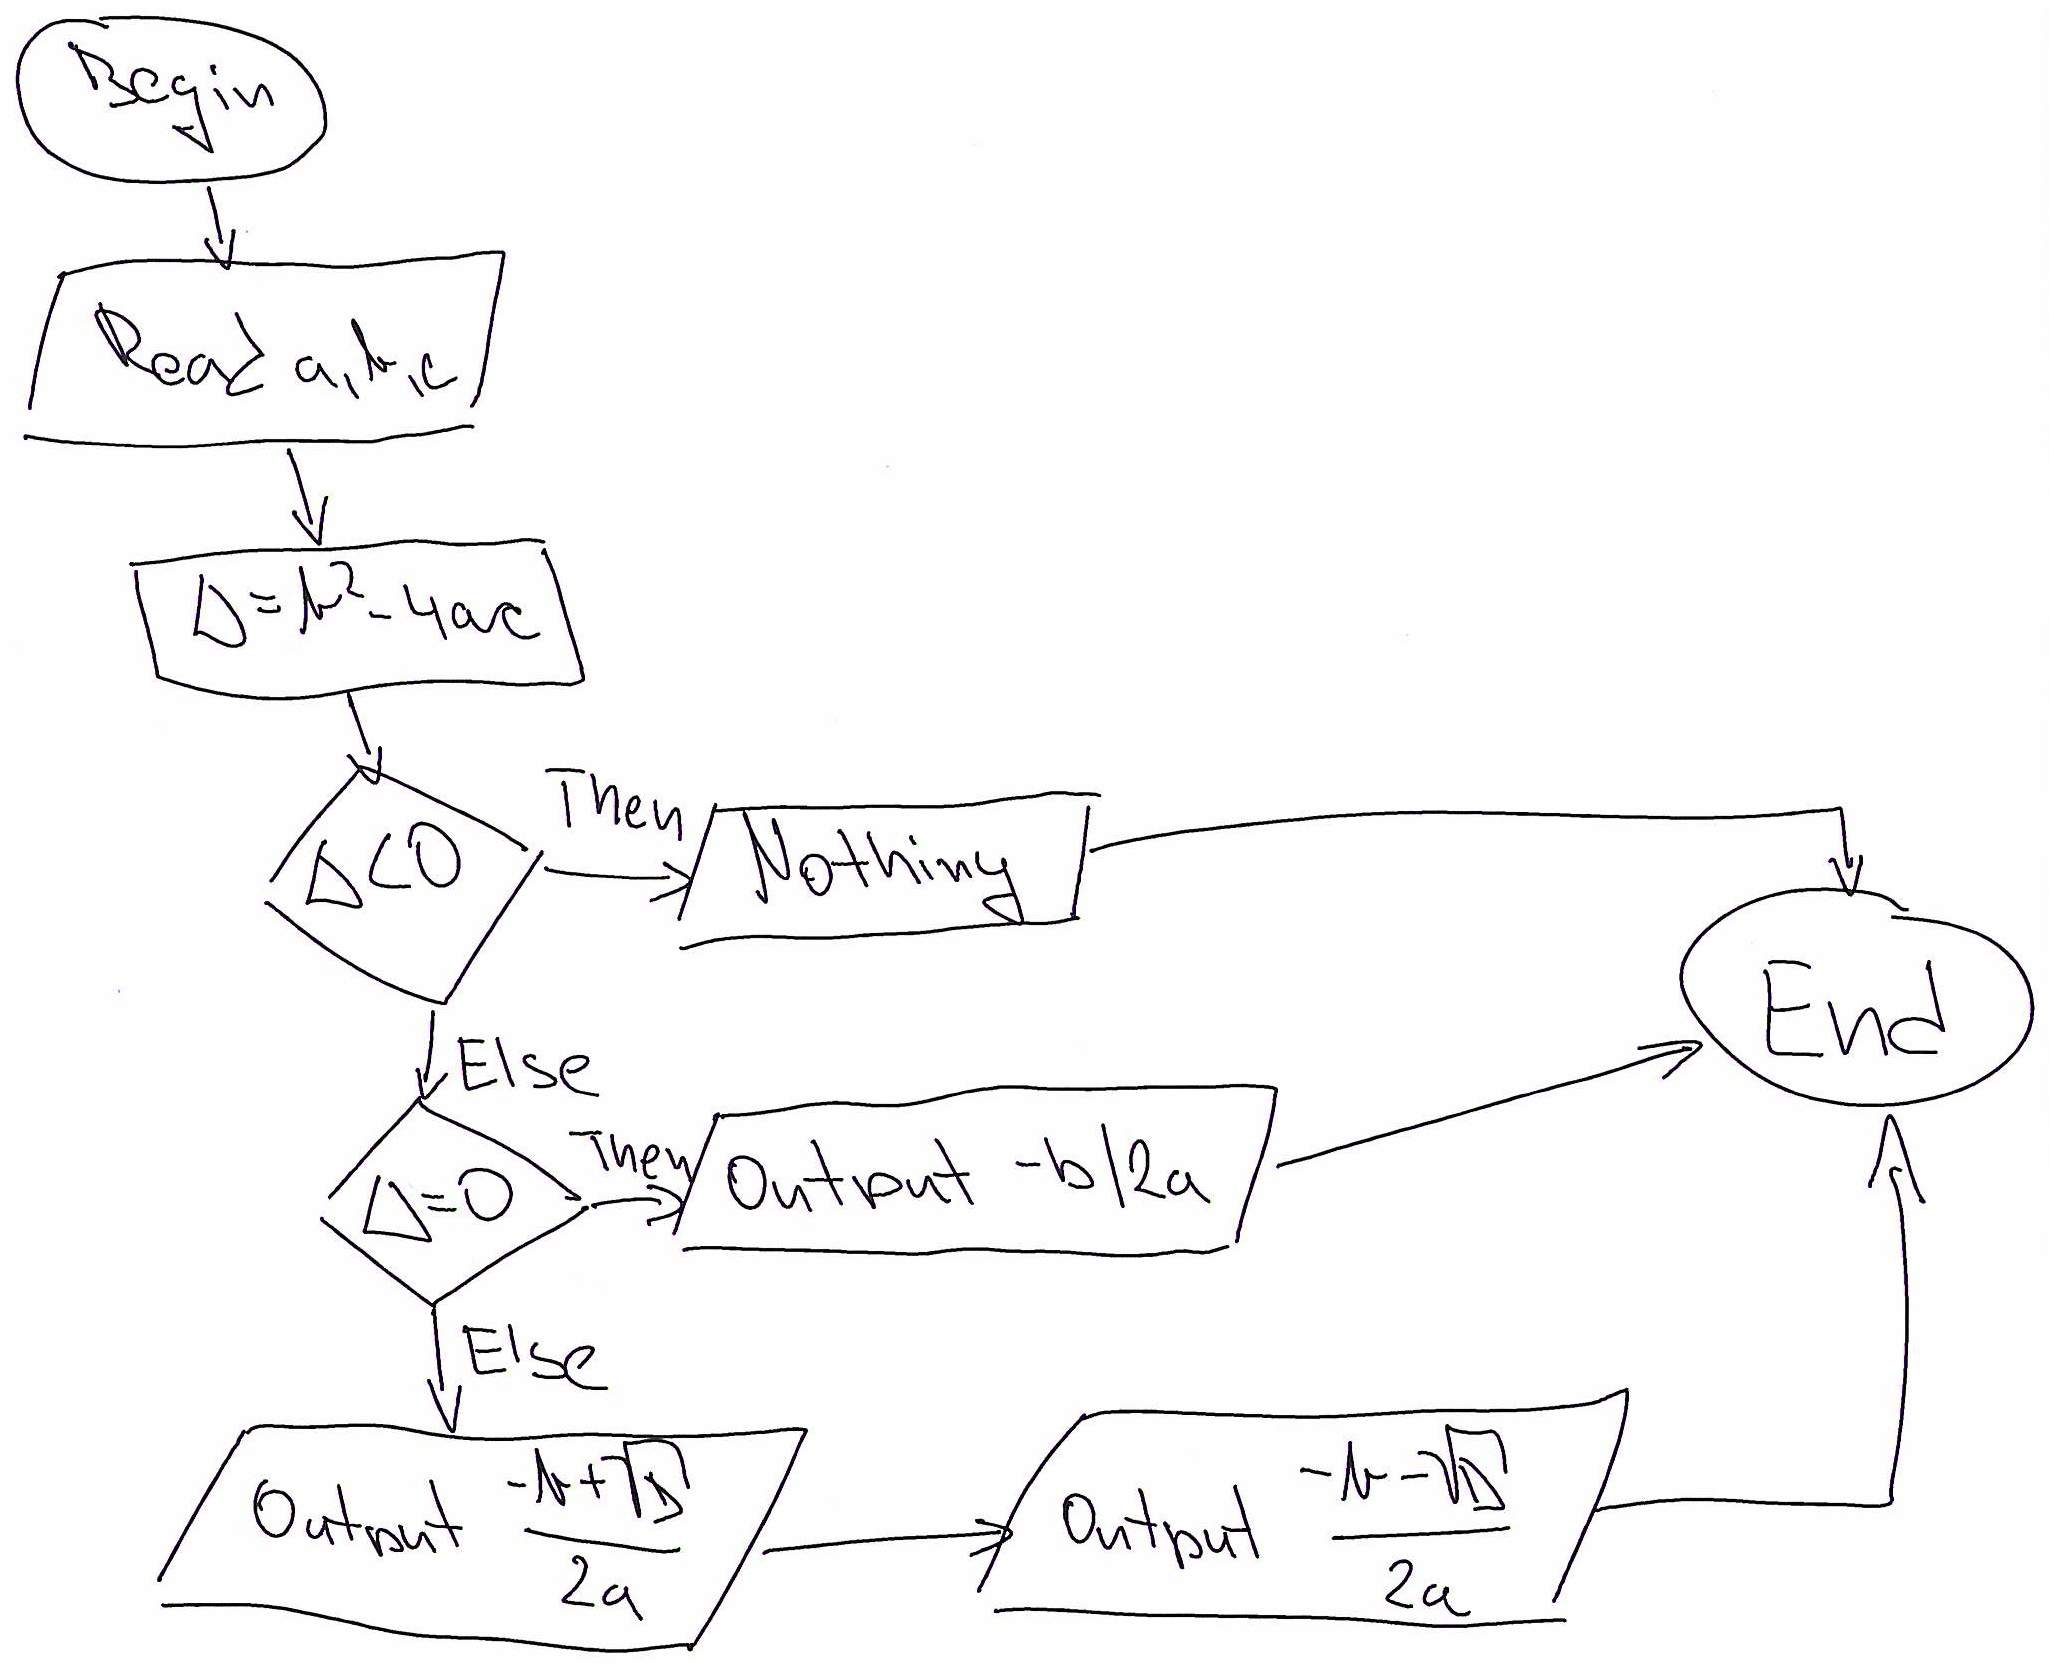 Begin
Read a, b, c
Δ = b² - 4ac
Δ < 0
Then
Nothing
End
Else
Δ = 0
Then
Output -b/2a
Else
Output (-b+√Δ)/2a
Output (-b-√Δ)/2a